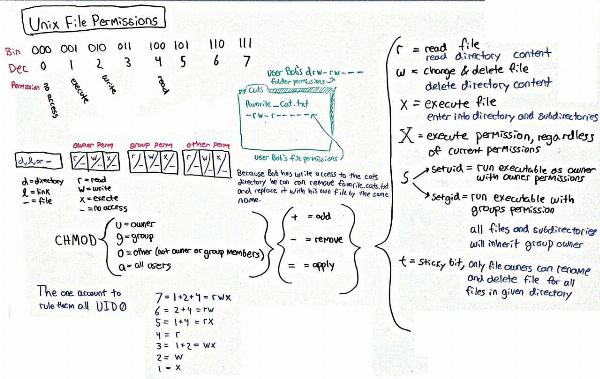 Unix File Permissions
Bin 000 001 010 011 100 101 110 111
Dec 0 1 2 3 4 5 6 7
Permission no access execute write read
User Bob's drw-rw----
folder permissions
Cats
favorite_cat.txt
-rw-r-----
User Bob's file permissions
Because Bob has write access to the cats
directory he can remove favorite_cats.txt
and replace it with his own file by the same
name.
owner perm group perm other perm
d, l, or - r/w/x r/w/x r/w/x
d = directory
l = link
- = file
r = read
w = write
x = execte
- = no access
CHMOD
u = owner
g = group
o = other (not owner or group members)
a = all users
+ = add
- = remove
= = apply
The one account to
rule them all UID0
7 = 1+2+4 = rwx
6 = 2+4 = rw
5 = 1+4 = rx
4 = r
3 = 1+2 = wx
2 = w
1 = x
r = read file
read directory content
w = change & delete file
delete directory content
x = execute file
enter into directory and subdirectories
X = execute permission, regardless
of current permissions
s
setuid = run executable as owner
with owner permissions
setgid = run executable with
groups permission
all files and subdirectories
will inherit group owner
t = sticky bit, only file owners can rename
and delete file for all
files in given directory